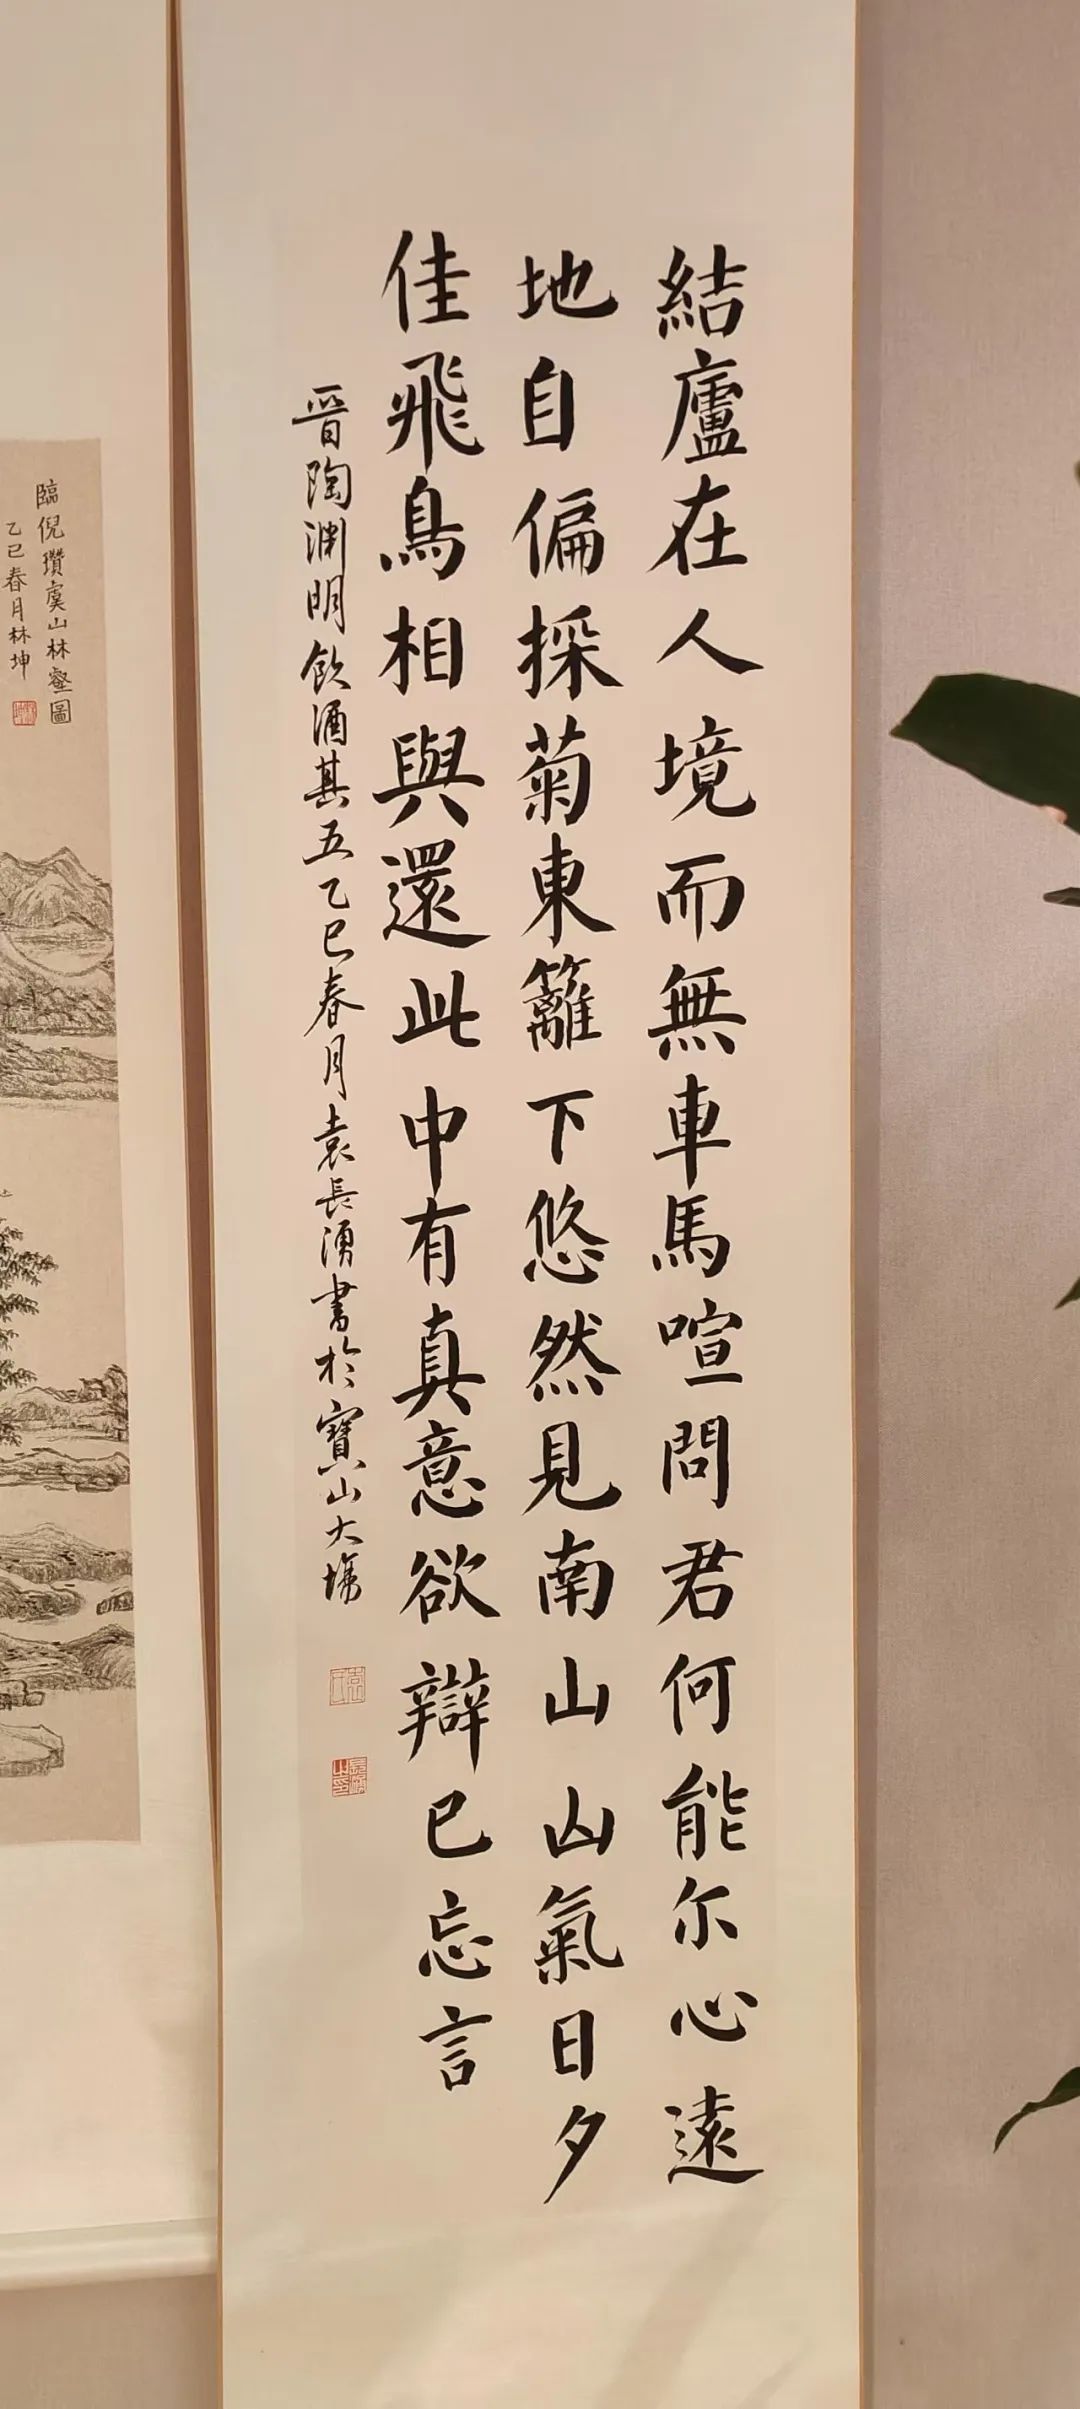 結廬在人境而無車馬喧問君何能尔心遠
地自偏採菊東籬下悠然見南山山氣日夕
佳飛鳥相與還此中有真意欲辯已忘言
晉陶淵明飲酒其五乙巳春月袁長湧書於寶山大場
臨倪瓚虞山林壑圖
乙巳春月林坤